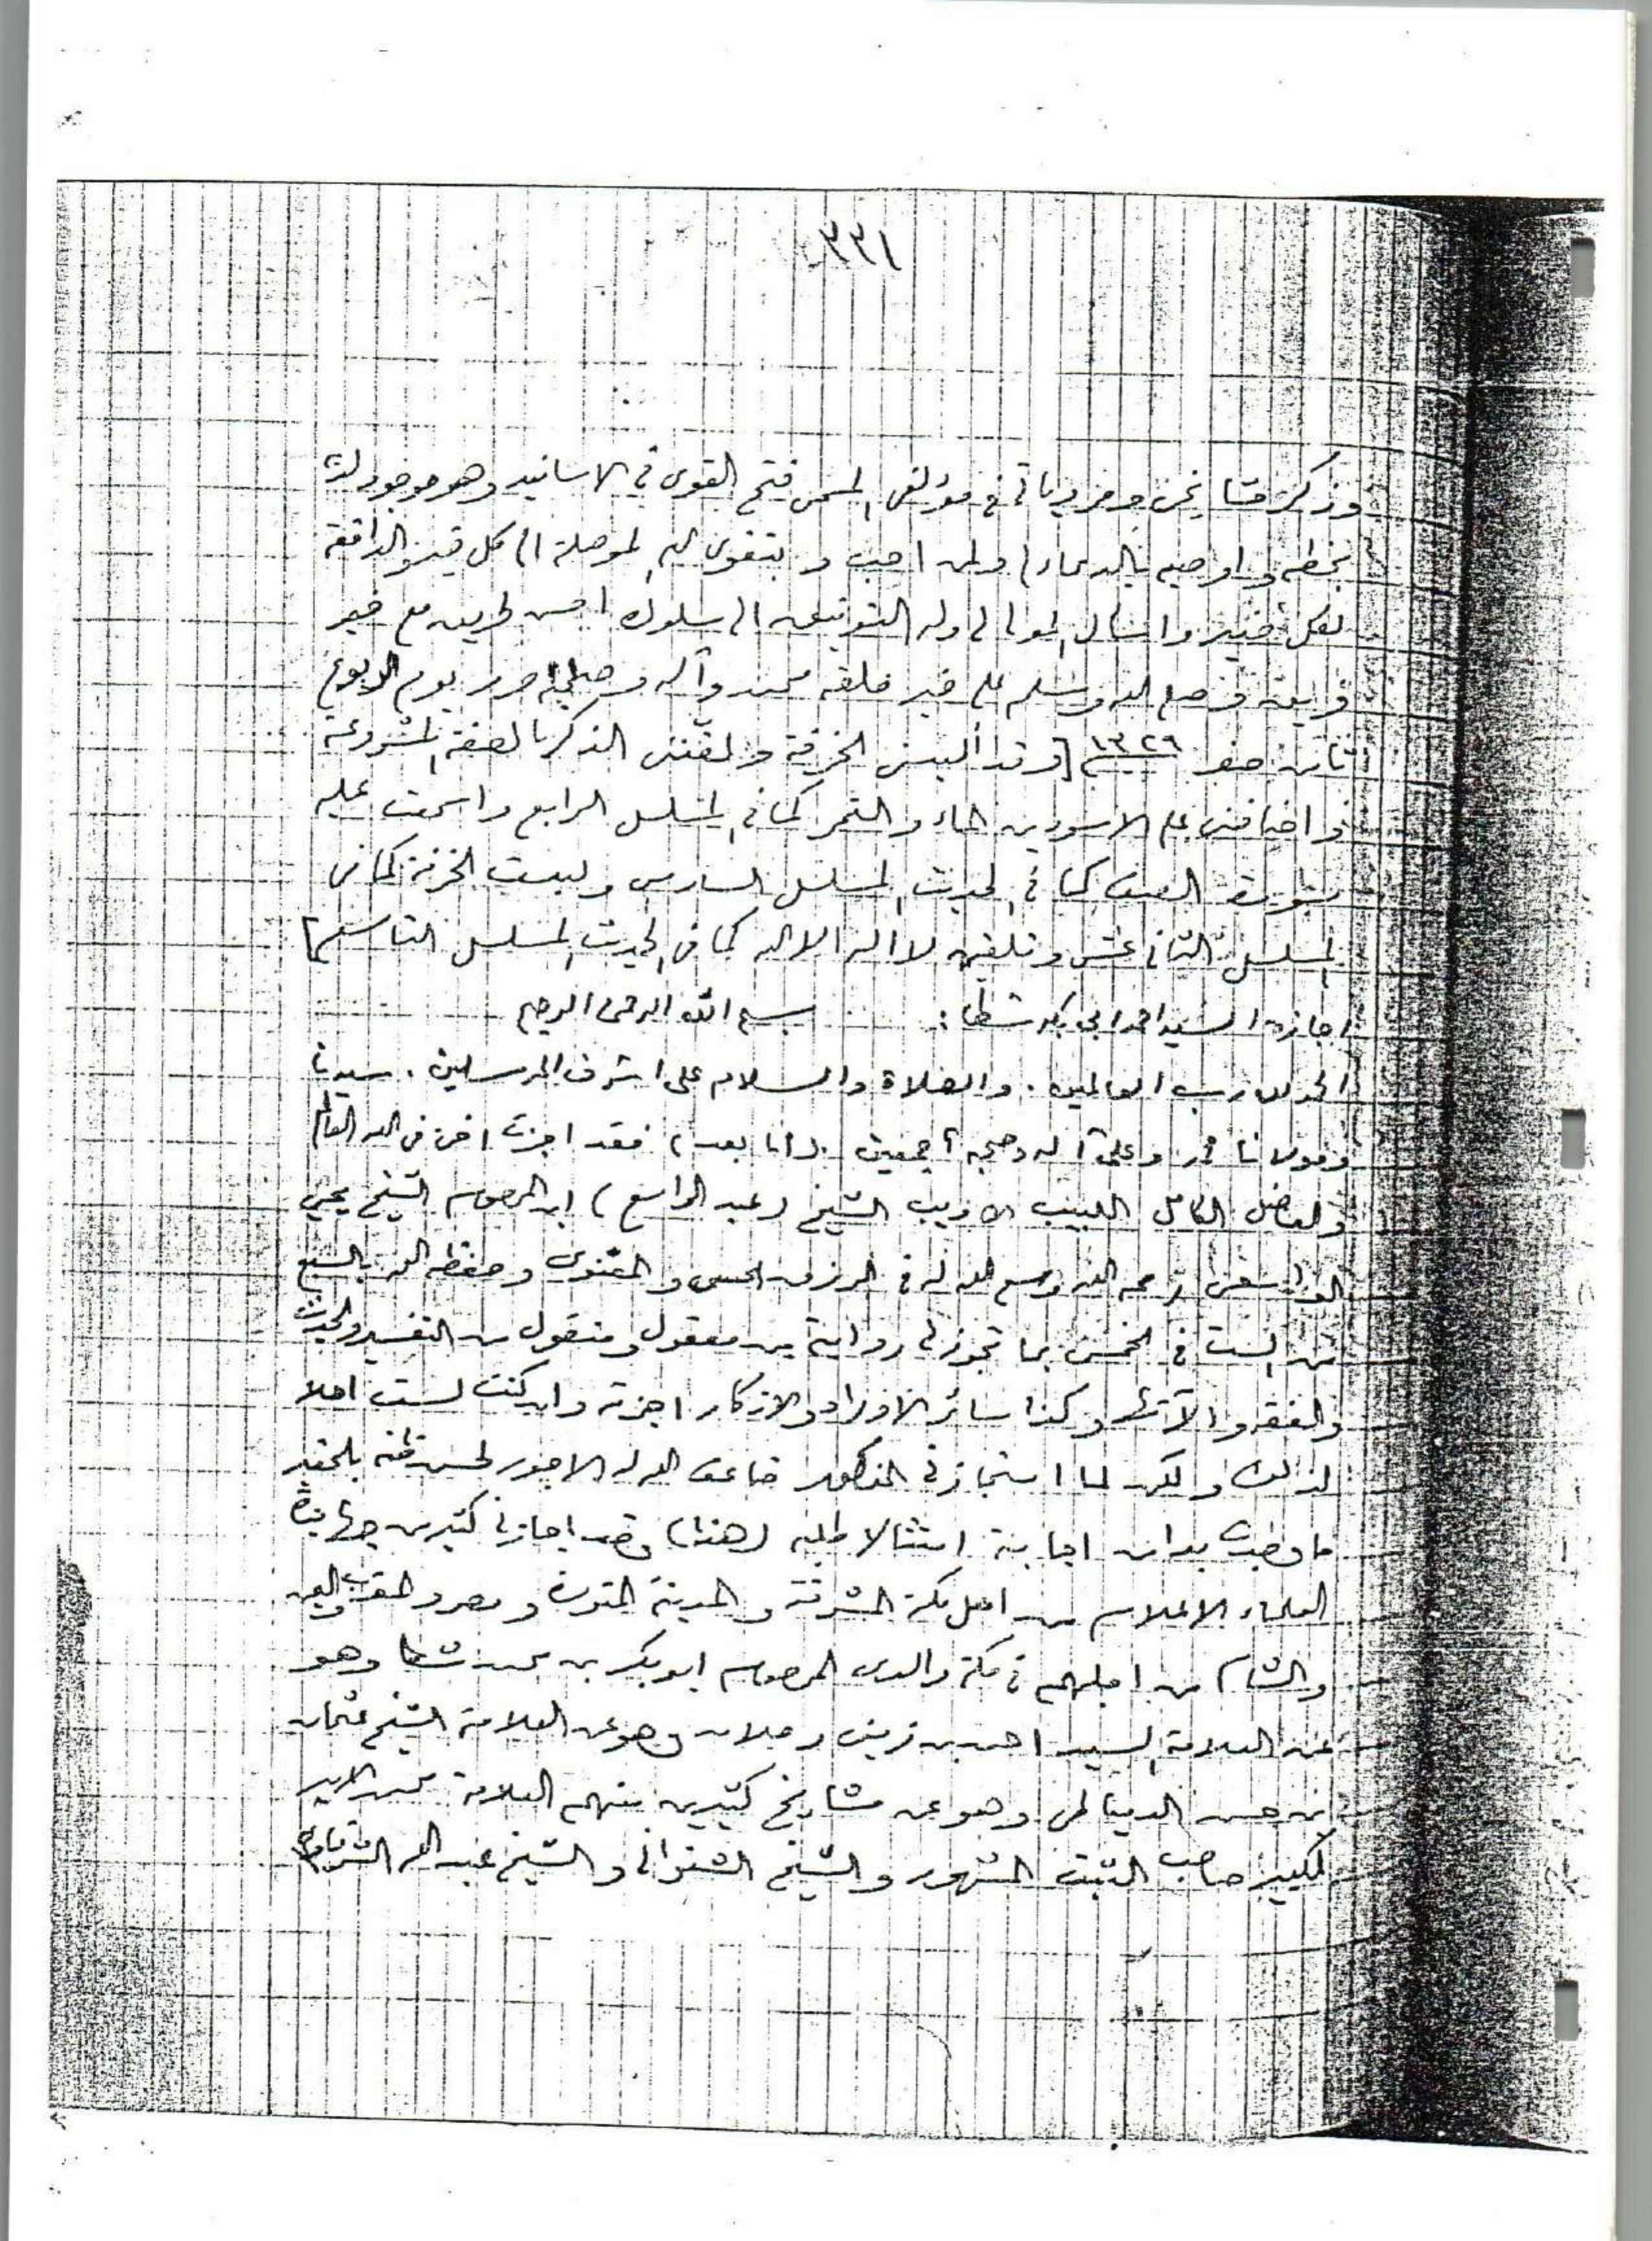 ٣٣١
وذكر مشايخى ومروياتى فى مؤلفى المسمى فتح القوى فى الاسانيد وهو موجود لديه
بخطى واوصيه بالدعاء لى ولمن احب و بتقوى الله الموصلة الى كل خير والدافعة
لكل ضير واسال المولى لى وله التوفيق الى سلوك احسن طريق مع خير
فريق وصلى الله وسلم على خير خلقه محمد وآله وصحبه حرر يوم الربوع
ثامن صفر ١٣٢٦ [وقد ألبسنى الخرقة ولقننى الذكر بالصفة المشروعة
واضافنى على الاسودين الماء والتمر كما فى المسلسل الرابع واسمعت عليه
سورة الصف كما فى الحديث المسلسل السادس ولبست الخرقة كما فى
المسلسل الثانى عشر وتلقين لا اله الا الله كما فى الحديث المسلسل التاسع]
اجازة السيد احمد ابى بكر شطا : بسم الله الرحمن الرحيم
الحمد لله رب العالمين . والصلاة والسلام على اشرف المرسلين . سيدنا
ومولانا محمد وعلى آله وصحبه أجمعين . (أما بعد) فقد اجزت اخى فى الله العالم
والفاضل الكامل اللبيب الاديب الشيخ (عبد الواسع) ابن المرحوم الشيخ يحيى
الواسعى رحمه الله ووسع الله له فى الرزق الحسى والمعنوى وحفظه الله بالسبع
من الست فى الخمس بما تجوز لى روايته من معقول ومنقول من التفسير والحديث
والفقه والآلات وكذا سائر الاوراد والاذكار اجزته وان كنت لست اهلا
لذلك ولكن لما استجازنى المذكور ضاعف الله له الاجور لحسن ظنه بالحقير
اجابة امتثالا لطلبه (هذا) وقد اجازنى كثير من جهابذة
العلماء الاعلام من اهل مكة المشرفة والمدينة المنورة ومصر والمغرب واليمن
والشام من اجلهم فى مكة والدى المرحوم ابو بكر بن محمد شطا وهو
عن العلامة السيد احمد بن زينى دحلان وهو عن العلامة الشيخ عثمان
بن حسن الدمياطى وهو عن مشايخ كثيرين منهم العلامة محمد الامير
الكبير صاحب الثبت المشهور والشيخ الشنوانى والشيخ عبد الله الشرقاوى